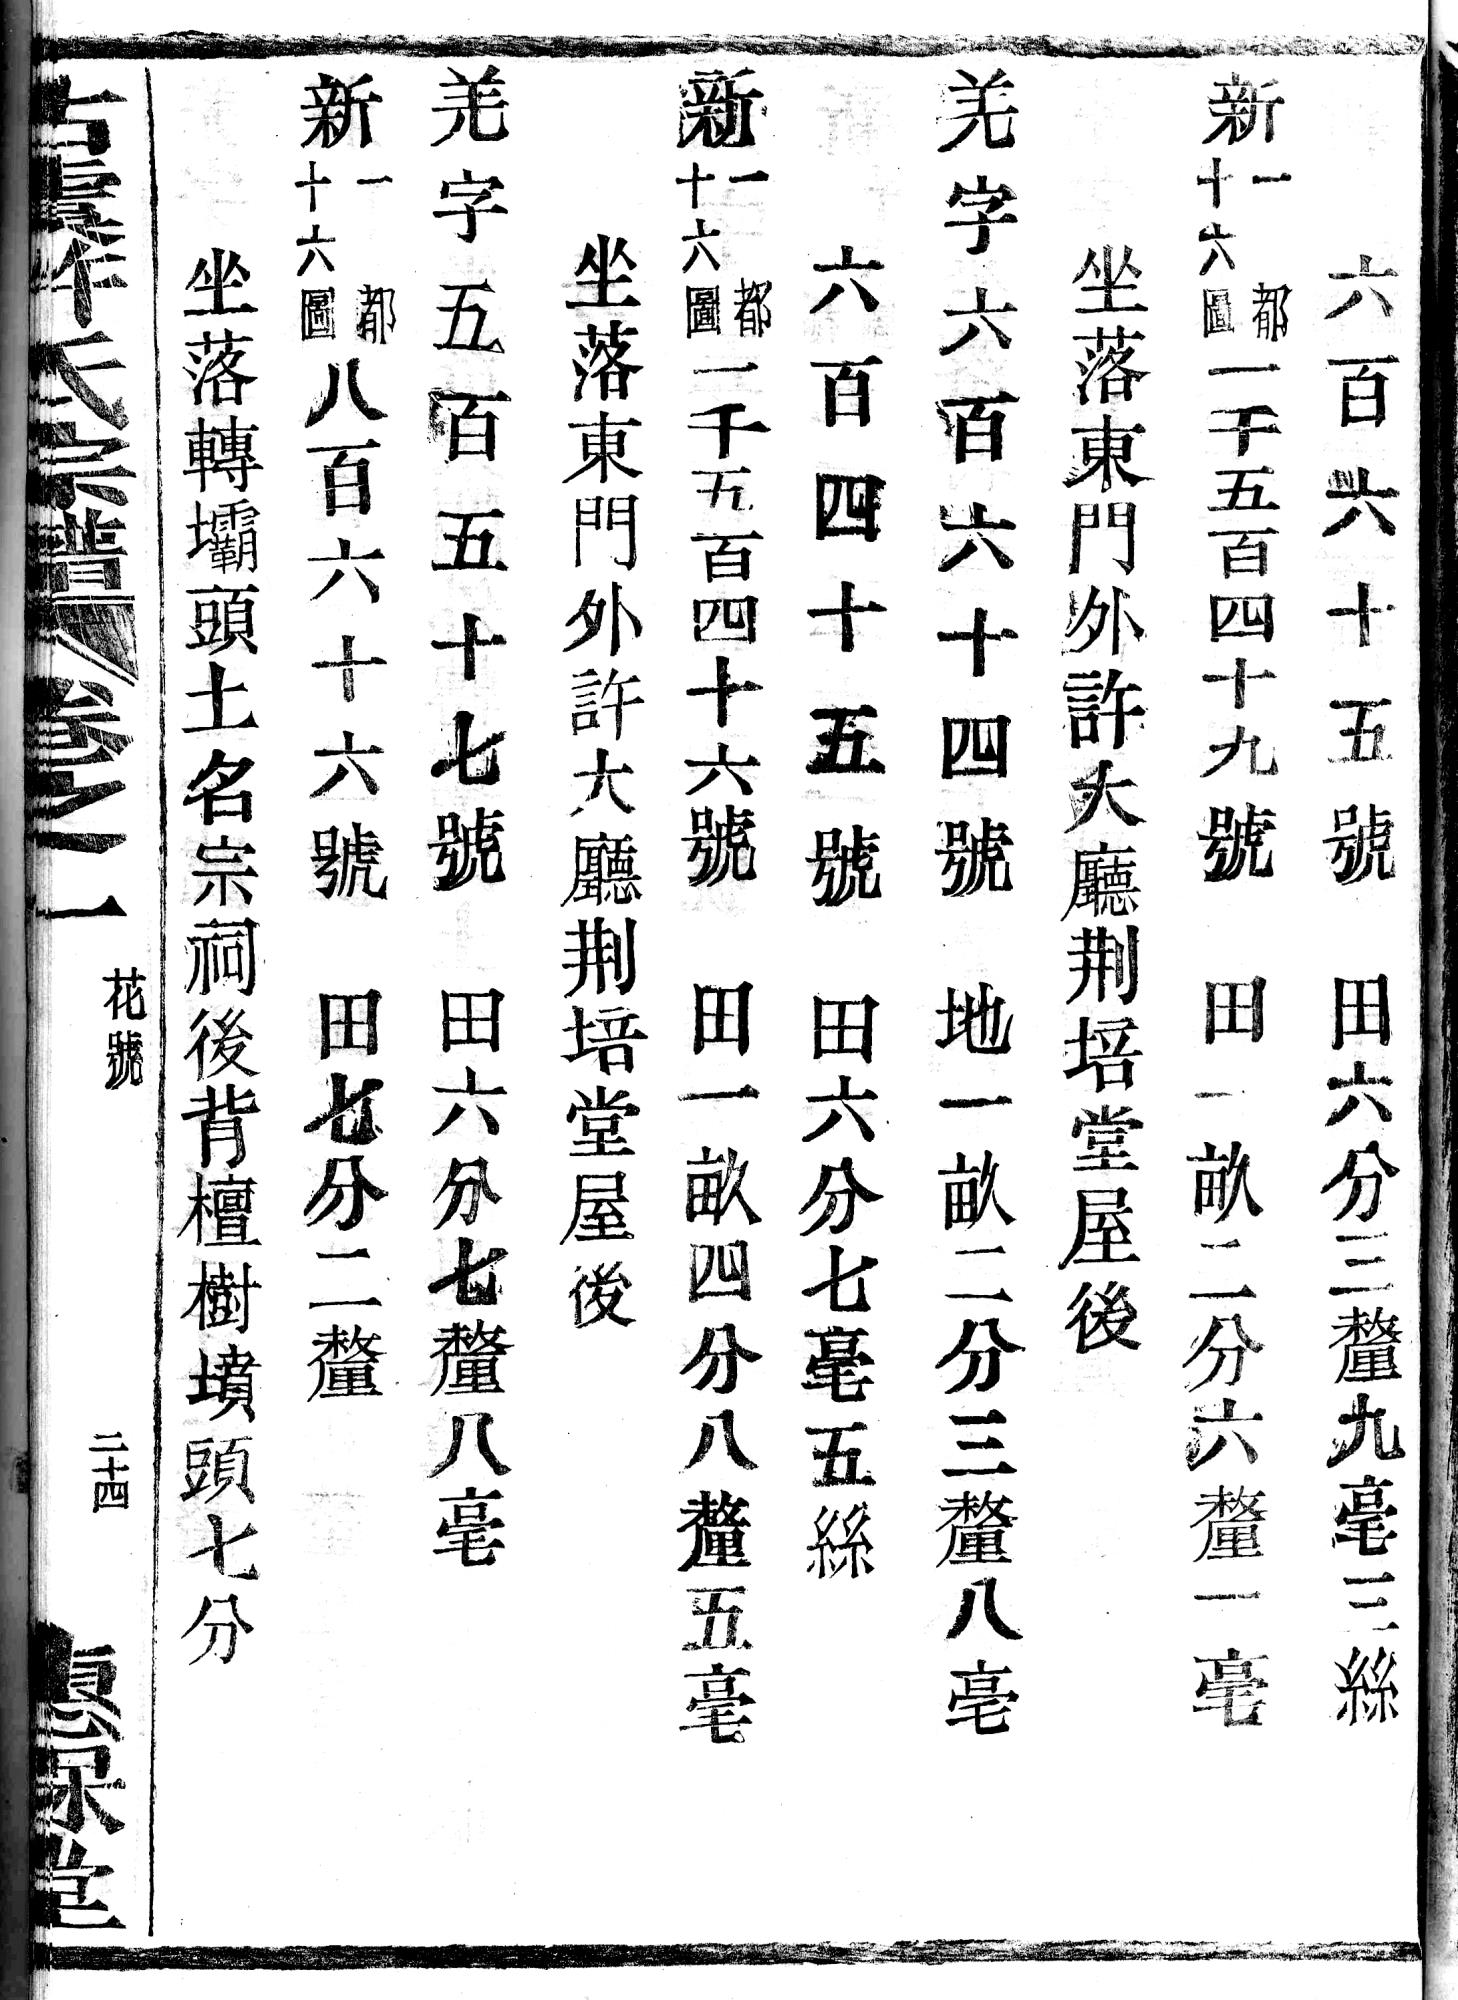 六百六十五號　田六分三釐九毫三絲
新一都十六圖一千五百四十九號　田一畝二分六釐一毫
坐落東門外許大廳荆培堂屋後
羌字六百六十四號　地一畝二分三釐八毫
六百四十五號　田六分七毫五絲
新一都十六圖一千五百四十六號　田一畝四分八釐五毫
坐落東門外許大廳荆培堂屋後
羌字五百五十七號　田六分七釐八毫
新一都十六圖八百六十六號　田七分二釐
坐落轉壩頭土名宗祠後背檀樹墳頭七分
氏宗譜卷之一　花號　二十四　堂